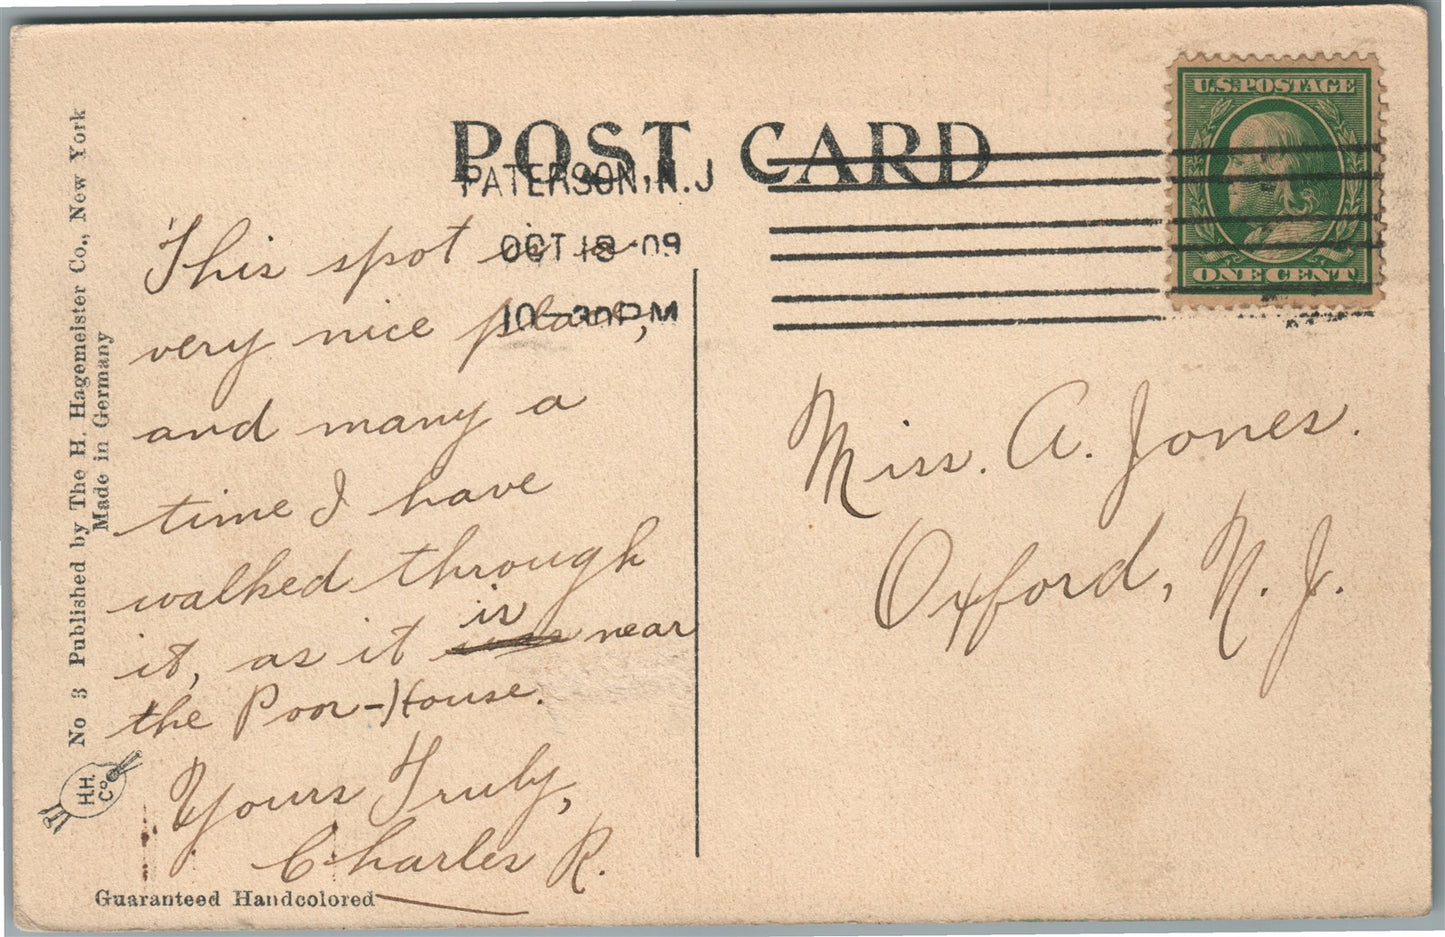 POST CARD
U.S. POSTAGE
ONE CENT
PATERSON, N.J
OCT 18 09
10-30PM
This spot is a
very nice place,
and many a
time I have
walked through
is
it, as it was near
the Poor-House.
Yours Truly,
Charles R.
Miss. A. Jones.
Oxford, N. J.
No 3 Published by The H. Hagemeister Co., New York
Made in Germany
H.H. Co
Guaranteed Handcolored